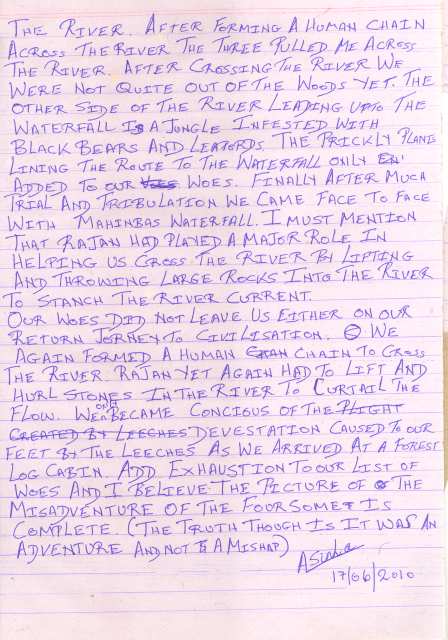 THE RIVER. AFTER FORMING A HUMAN CHAIN
ACROSS THE RIVER THE THREE PULLED ME ACROSS
THE RIVER. AFTER CROSSING THE RIVER WE
WERE NOT QUITE OUT OF THE WOODS YET. THE
OTHER SIDE OF THE RIVER LEADING UPTO THE
WATERFALL IS A JUNGLE INFESTED WITH
BLACK BEARS AND LEAPORDS. THE PRICKLY PLANTS
LINING THE ROUTE TO THE WATERFALL ONLY
ADDED TO OUR WOES. FINALLY AFTER MUCH
TRIAL AND TRIBULATION WE CAME FACE TO FACE
WITH MAHINBAS WATERFALL. I MUST MENTION
THAT RAJAN HAD PLAYED A MAJOR ROLE IN
HELPING US CROSS THE RIVER BY LIFTING
AND THROWING LARGE ROCKS INTO THE RIVER
TO STANCH THE RIVER CURRENT.
OUR WOES DID NOT LEAVE US EITHER ON OUR
RETURN JORNEY TO CIVILISATION. WE
AGAIN FORMED A HUMAN CHAIN TO CROSS
THE RIVER. RAJAN YET AGAIN HAD TO LIFT AND
HURL STONES IN THE RIVER TO CURTAIL THE
FLOW. WE ONLY BECAME CONCIOUS OF THE PLIGHT
CREATED BY LEECHES DEVESTATION CAUSED TO OUR
FEET BY THE LEECHES AS WE ARRIVED AT A FOREST
LOG CABIN. ADD EXHAUSTION TO OUR LIST OF
WOES AND I BELIEVE THE PICTURE OF THE
MISADVENTURE OF THE FOURSOME IS
COMPLETE. (THE TRUTH THOUGH IS IT WAS AN
ADVENTURE AND NOT A MISHAP)
ASinha
17/06/2010